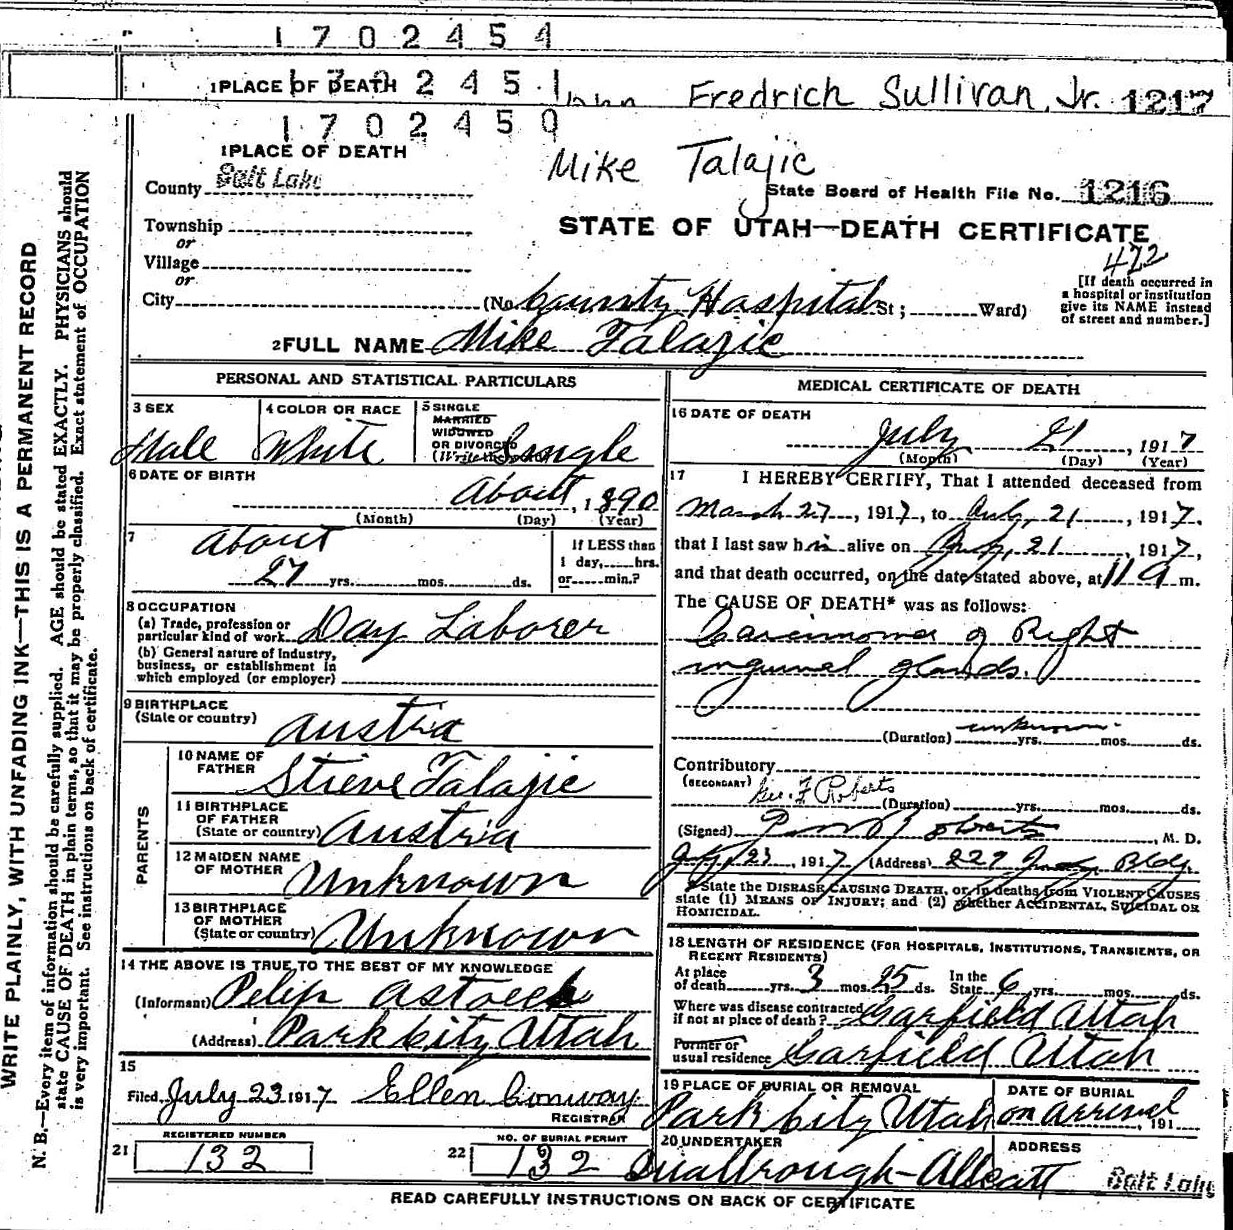 1702454
1 PLACE OF DEATH
170245 1
John Fredrich Sullivan, Jr. 1217
1702450
1 PLACE OF DEATH
Mike Talajic
County Salt Lake
State Board of Health File No. 1216
Township
or
STATE OF UTAH—DEATH CERTIFICATE
472
Village
or
City
(No. County Hospital St; Ward)
[If death occurred in
a hospital or institution
give its NAME instead
of street and number.]
2 FULL NAME Mike Talajic
PERSONAL AND STATISTICAL PARTICULARS
3 SEX
Male
4 COLOR OR RACE
White
5 SINGLE
MARRIED
WIDOWED
OR DIVORCED
(Write the word)
Single
6 DATE OF BIRTH
About, 1890
(Month) (Day) (Year)
7
About
27 yrs. mos. ds.
If LESS than
1 day, hrs.
or min.?
8 OCCUPATION
(a) Trade, profession or
particular kind of work Day Laborer
(b) General nature of Industry,
business, or establishment in
which employed (or employer)
9 BIRTHPLACE
(State or country) Austria
PARENTS
10 NAME OF
FATHER Stieve Talajic
11 BIRTHPLACE
OF FATHER
(State or country) Austria
12 MAIDEN NAME
OF MOTHER Unknown
13 BIRTHPLACE
OF MOTHER
(State or country) Unknown
14 THE ABOVE IS TRUE TO THE BEST OF MY KNOWLEDGE
(Informant) Pelip
(Address) Park City Utah
15
Filed July 23 1917 Ellen Conway
REGISTRAR
21 REGISTERED NUMBER
132
22 NO. OF BURIAL PERMIT
132
MEDICAL CERTIFICATE OF DEATH
16 DATE OF DEATH
July 21, 1917
(Month) (Day) (Year)
17 I HEREBY CERTIFY, That I attended deceased from
March 27, 1917, to July, 21, 1917.
that I last saw him alive on July, 21, 1917,
and that death occurred, on the date stated above, at 11 a m.
The CAUSE OF DEATH* was as follows:
Carcinoma of Right
inguinal glands.
unknown
(Duration) yrs. mos. ds.
Contributory
(SECONDARY) Geo. F Roberts
(Duration) yrs. mos. ds.
(Signed) Roberts, M. D.
July 23, 1917 (Address) 229 Bldg
*State the DISEASE CAUSING DEATH, or, in deaths from VIOLENT CAUSES
state (1) MEANS OF INJURY; and (2) whether ACCIDENTAL, SUICIDAL OR
HOMICIDAL.
18 LENGTH OF RESIDENCE (FOR HOSPITALS, INSTITUTIONS, TRANSIENTS, OR
RECENT RESIDENTS)
At place
of death yrs. 3 mos. 25 ds. In the
State 6 yrs. mos. ds.
Where was disease contracted
if not at place of death? Garfield Utah
Former or
usual residence Garfield Utah
19 PLACE OF BURIAL OR REMOVAL
Park City Utah
DATE OF BURIAL
on arrival, 191
20 UNDERTAKER
ADDRESS
Salt Lake
READ CAREFULLY INSTRUCTIONS ON BACK OF CERTIFICATE
WRITE PLAINLY, WITH UNFADING INK—THIS IS A PERMANENT RECORD
N. B.—Every item of information should be carefully supplied. AGE should be stated EXACTLY. PHYSICIANS should
state CAUSE OF DEATH in plain terms, so that it may be properly classified. Exact statement of OCCUPATION
is very important. See instructions on back of certificate.